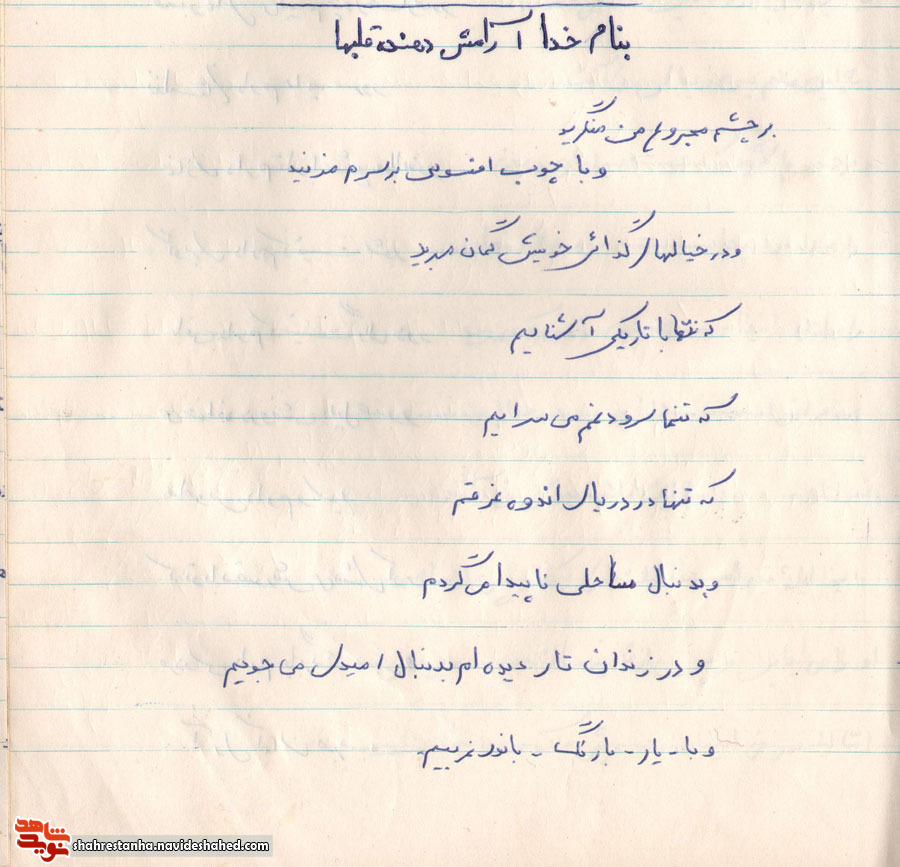 بنام خدا آرامش دهنده قلبها
بر چشم مجروح من منگرید
و با چوب افسوس بر سرم مزانید
و در خیالهای گذائی خویش گمان مبرید
که تنها با تاریکی آشنایم
که تنها سرود غم می سرایم
که تنها در دریای اندوه غرقم
و بدنبال ساحلی ناپیدا می گردم
و در زندان تار دیده ام بدنبال امیدی می جویم
و با - یار - بارنگ - بانور غریبیم
شاهد
نوید
shahrestanha.navideshahed.com